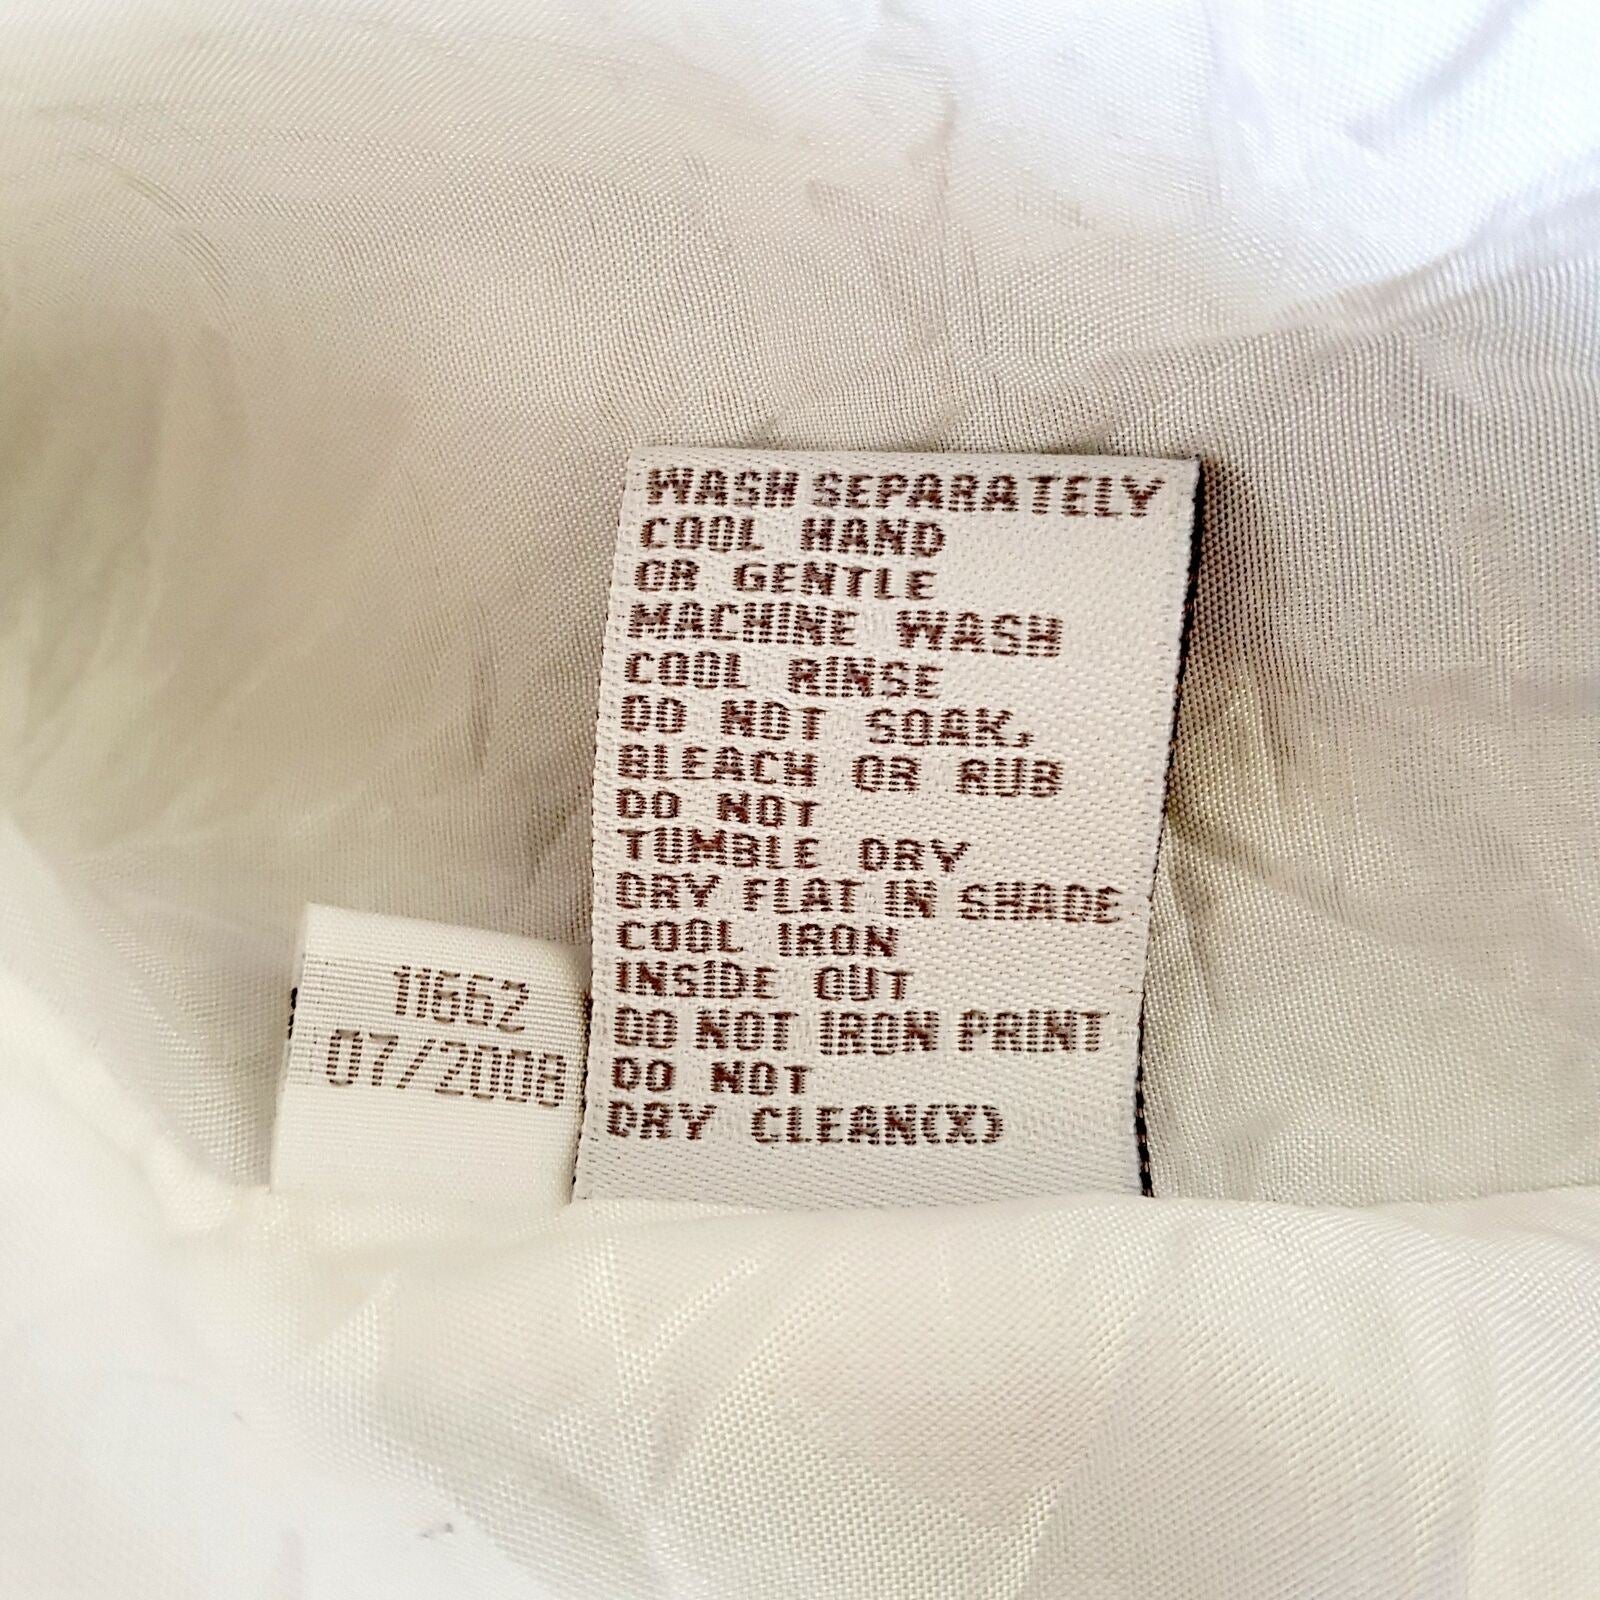 WASH SEPARATELY
COOL HAND
OR GENTLE
MACHINE WASH
COOL RINSE
DO NOT SOAK,
BLEACH OR RUB
DO NOT
TUMBLE DRY
DRY FLAT IN SHADE
COOL IRON
INSIDE OUT
DO NOT IRON PRINT
DO NOT
DRY CLEAN(X)
11662
07/2008